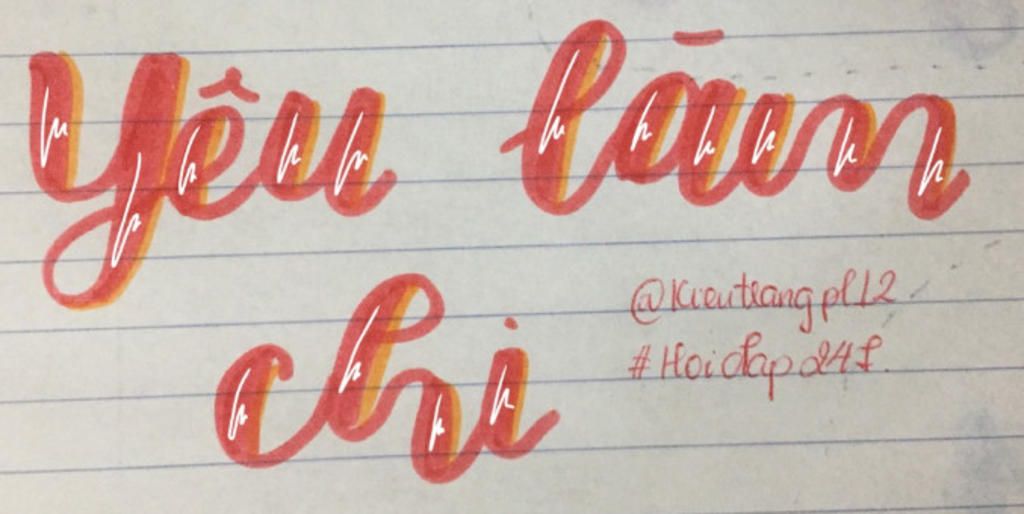 Yêu làm
chi
@Kieutrangpl12
#Hoidap247.